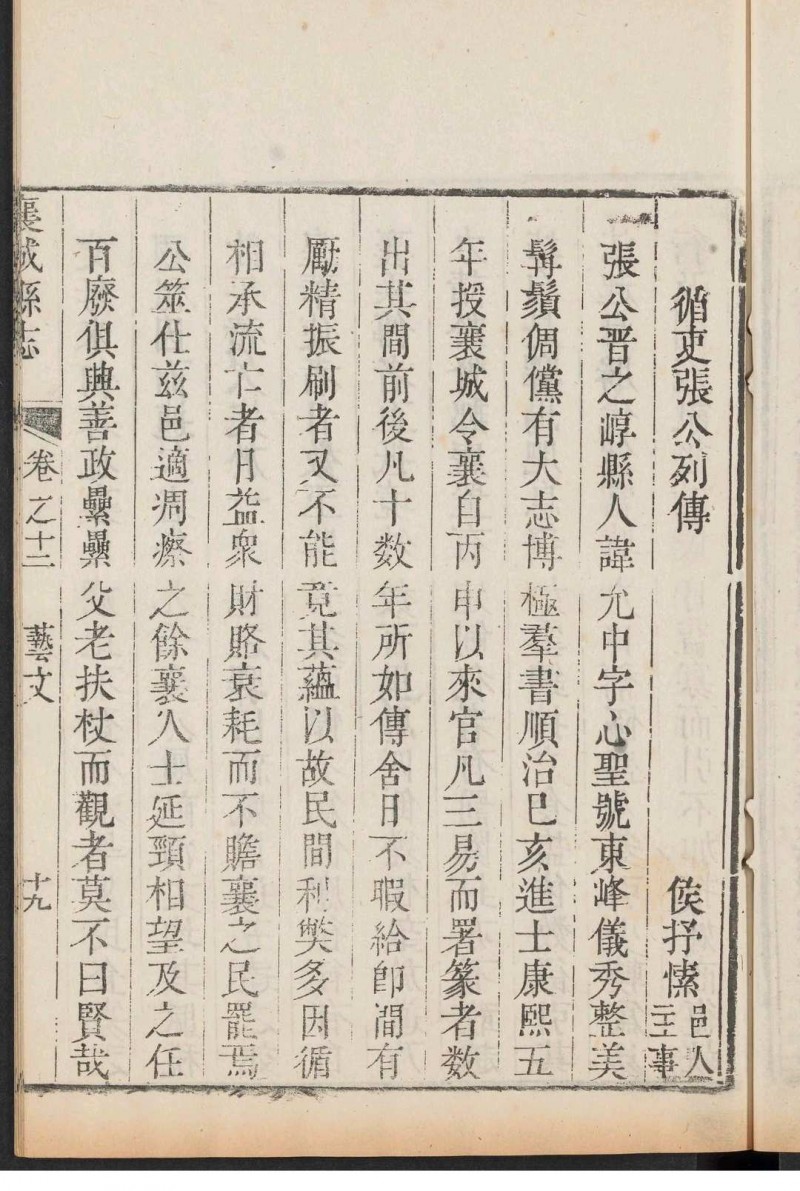 循吏張公列傳 侯抒愫邑人主事
張公晋之崞縣人諱允中字心聖號東峰儀秀整美
髯鬚倜儻有大志博極羣書順治己亥進士康熙五
年授襄城令襄自丙申以來官凡三易而署篆者數
出其間前後凡十數年所如傳舍日不暇給卽間有
厲精振刷者又不能竟其蘊以故民間利獘多因循
相承流亡者日益衆財賂衰耗而不贍襄之民罷焉
公筮仕兹邑適凋瘵之餘襄人士延頸相望及之任
百廢俱興善政纍纍父老扶杖而觀者莫不曰賢哉
襄城縣志 卷之十二 藝文 十九